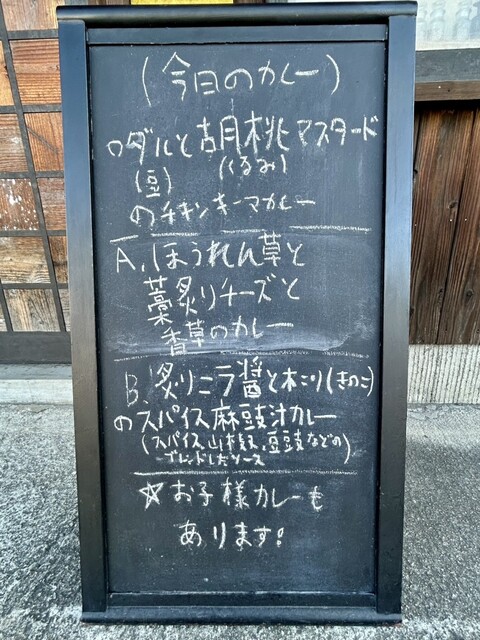 (今日のカレー)
○ダルと胡桃マスタード
(豆) (くるみ)
のチキンキーマカレー
A、ほうれん草と
藁炙りチーズと
香草のカレー
B、炙りニラ醤と木こり(きのこ)
のスパイス麻豉汁カレー
(スパイス、山椒、豆豉などの
ブレンドしたソース
☆お子様カレーも
あります!